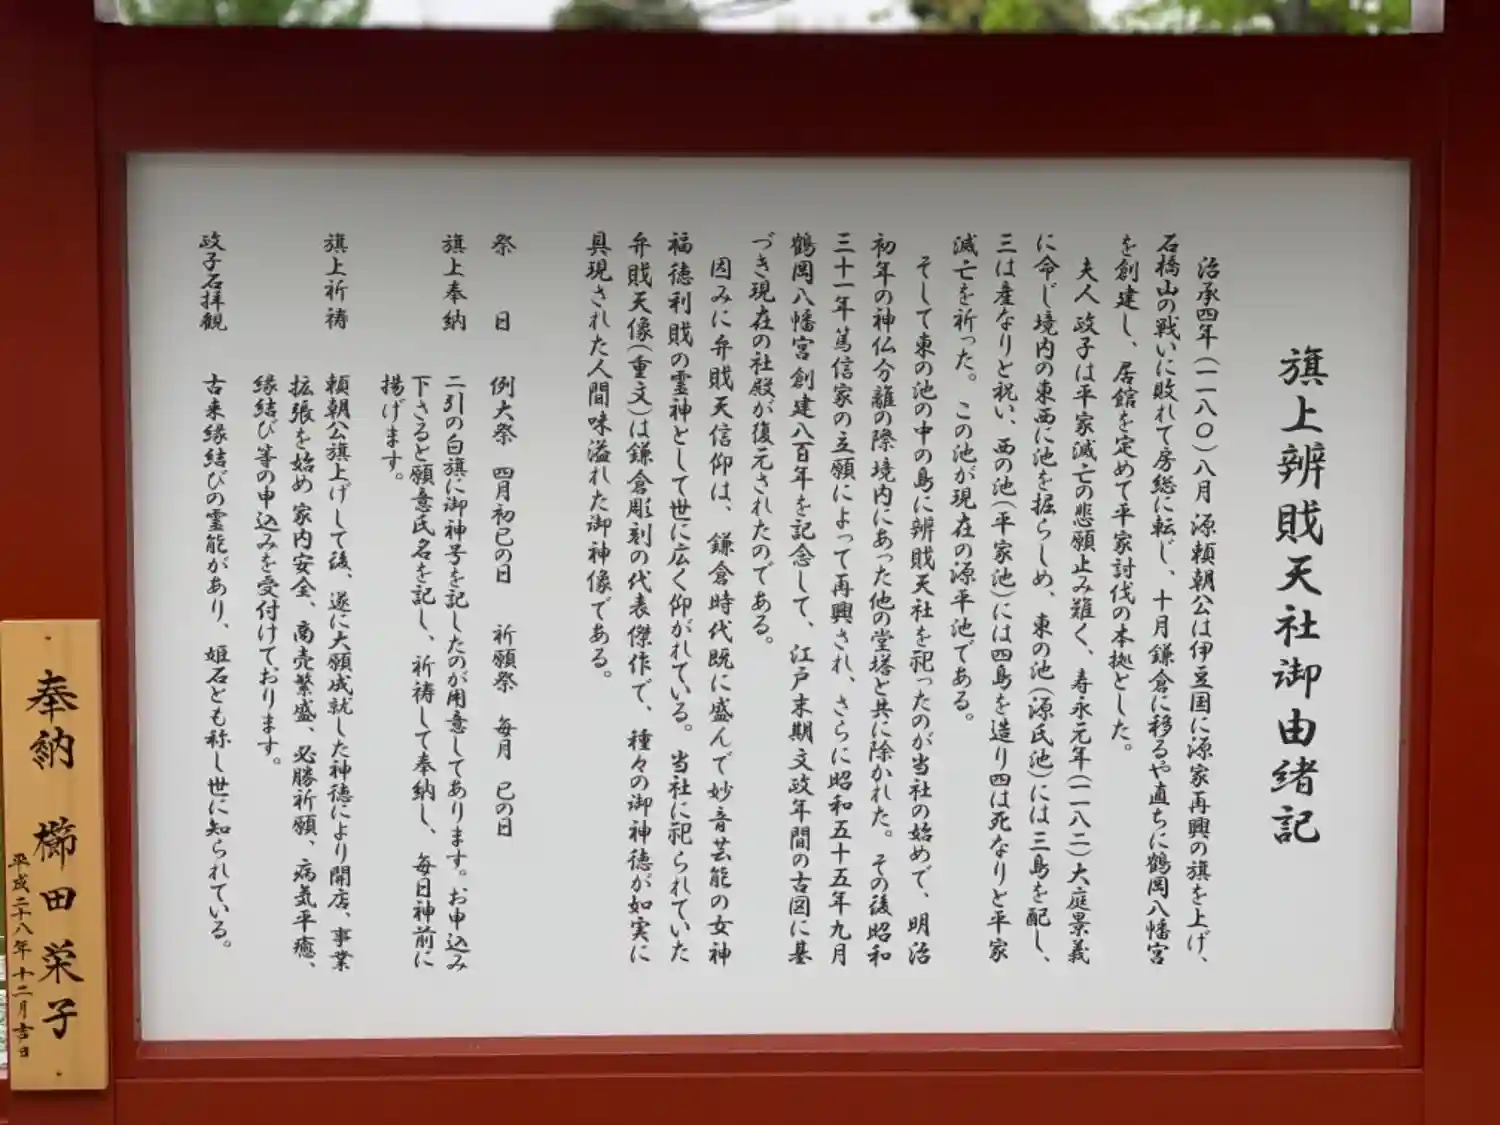 旗上辨賎天社御由緒記
治承四年(一一八〇)八月 源頼朝公は伊豆国に源家再興の旗を上げ、
石橋山の戦いに敗れて房総に転じ、十月鎌倉に移るや直ちに鶴岡八幡宮
を創建し、居館を定めて平家討伐の本拠とした。
夫人政子は平家滅亡の悲願止み難く、寿永元年(一一八二)大庭景義
に命じ境内の東西に池を掘らしめ、東の池(源氏池)には三島を配し、
三は産なりと祝い、西の池(平家池)には四島を造り四は死なりと平家
滅亡を祈った。この池が現在の源平池である。
そして東の池の中の島に辨賎天社を祀ったのが当社の始めで、明治
初年の神仏分離の際境内にあった他の堂塔と共に除かれた。その後昭和
三十一年篤信家の立願によって再興され、さらに昭和五十五年九月
鶴岡八幡宮創建八百年を記念して、江戸末期文政年間の古図に基
づき現在の社殿が復元されたのである。
因みに弁賎天信仰は、鎌倉時代既に盛んで妙音芸能の女神
福徳利賎の霊神として世に広く仰がれている。当社に祀られていた
弁賎天像(重文)は鎌倉彫刻の代表傑作で、種々の御神徳が如実に
具現された人間味溢れた御神像である。
祭 日 例大祭 四月初巳の日 祈願祭 毎月 巳の日
旗上奉納 二引の白旗に御神号を記したのが用意してあります。お申込み
下さると願意氏名を記し、祈祷して奉納し、毎日神前に
揚げます。
旗上祈祷 頼朝公旗上げして後、遂に大願成就した神徳により開店、事業
拡張を始め家内安全、商売繁盛、必勝祈願、病気平癒、
縁結び等の申込みを受付けております。
政子石拝観 古来縁結びの霊能があり、姫石とも称し世に知られている。
奉納 櫛田栄子
平成二十八年十二月吉日